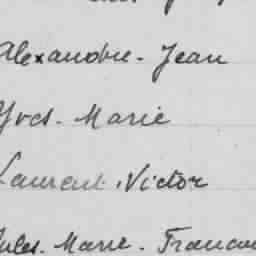 Alexandre. Jean
Yves. Marie
Laurent. Victor
Jules. Marie.